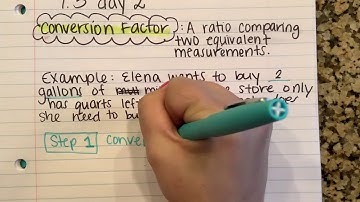 1.3 day 2
Conversion Factor: A ratio comparing
two equivalent
measurements.
Example: Elena wants to buy 2
gallons of store only
has quarts
she need to bu
Step 1 Conve